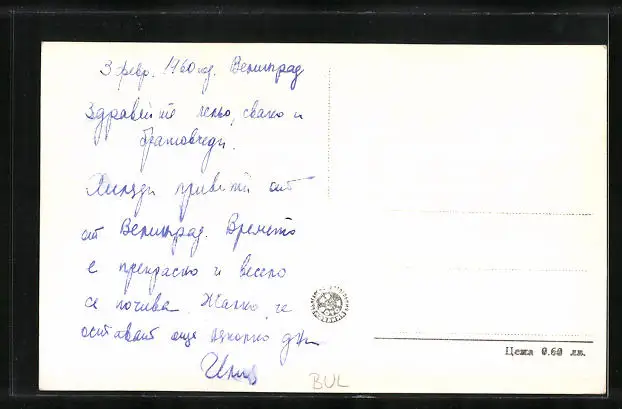 3 февр. 1960 год. Велинград
Здравейте лельо, свако и
братовчеди.
Хиляди привети от
от Велинград. Времето
е прекрасно и весело
се почива. Жалко, че
остават още няколко дни
Цена 0.60 лв.
BUL